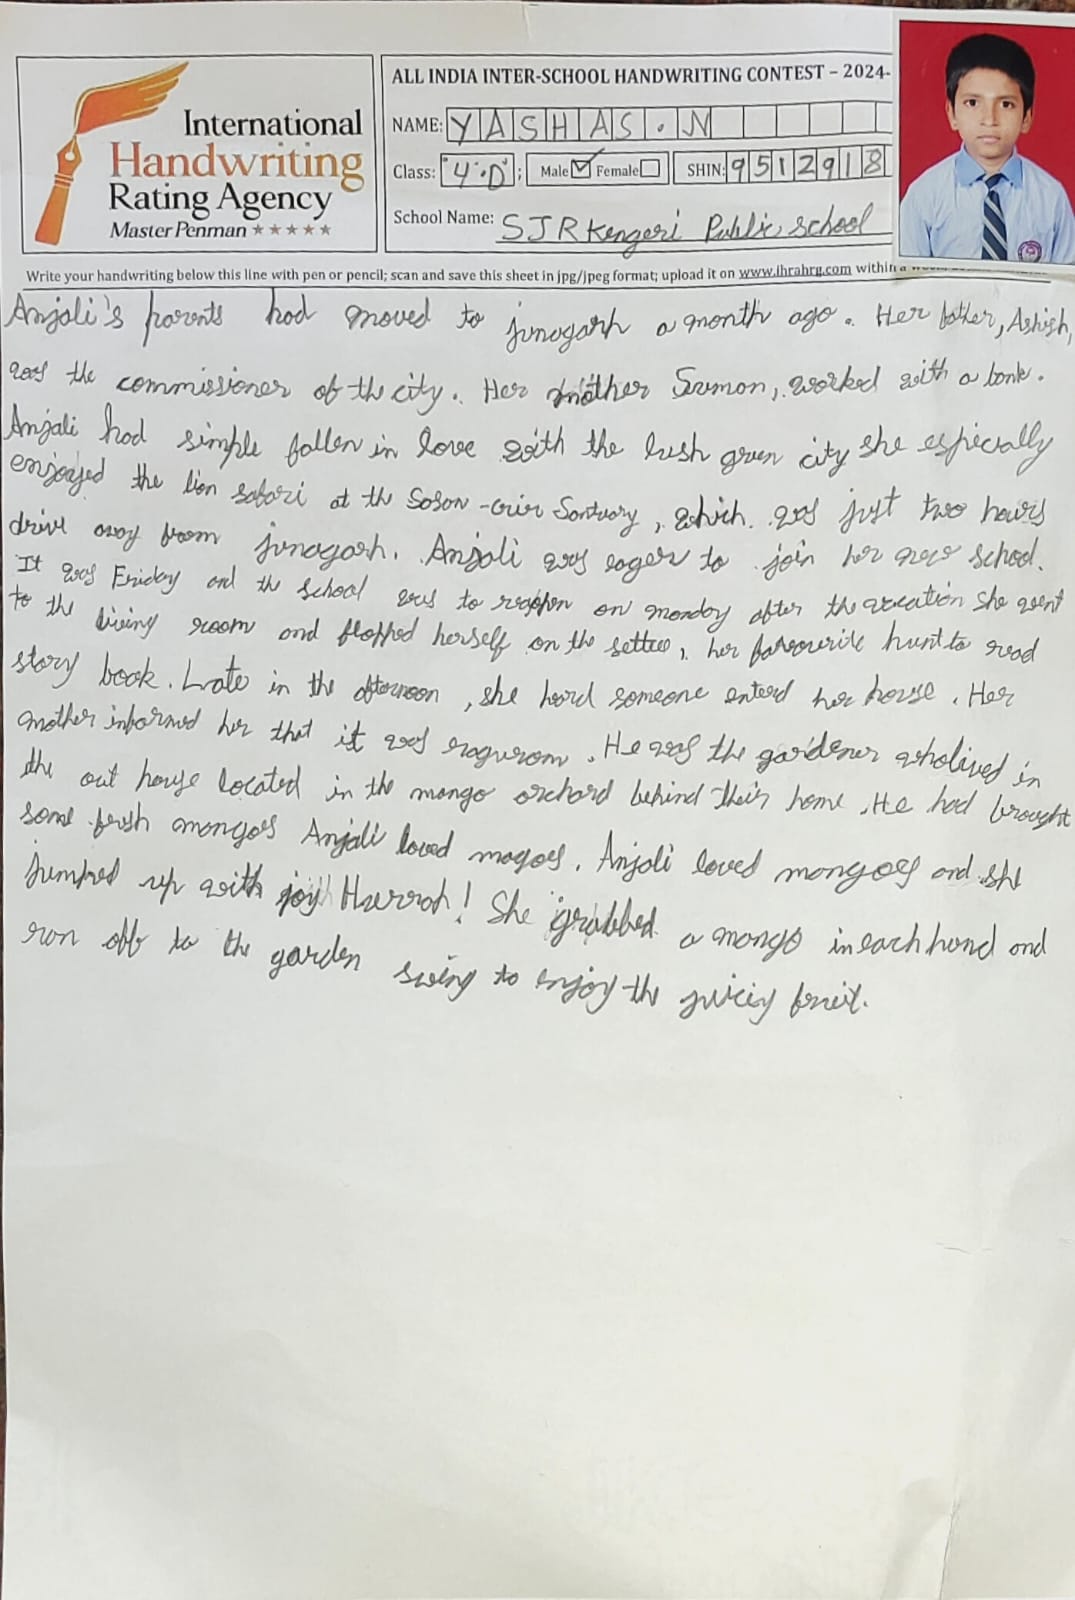 International
Handwriting
Rating Agency
Master Penman ★★★★★
ALL INDIA INTER-SCHOOL HANDWRITING CONTEST – 2024-
NAME: YASHAS.N
Class: 4.D; Male ☑ Female ☐ SHIN: 9512918
School Name: SJR Kengeri Public School
Write your handwriting below this line with pen or pencil; scan and save this sheet in jpg/jpeg format; upload it on www.ihrahrg.com within a
Anjali's parents had moved to junagarh a month ago. Her father, Ashish,
was the commissioner of the city. Her mother Suman, worked with a bank.
Anjali had simple fallen in love with the lush green city she espicially
enjoyed the lion safari at the Sosan-Grir Santuary, which was just two hours
drive away from junagarh. Anjali was eager to join her new school.
It was Friday and the school was to reopen on monday after the vacation She went
to the living room and flopped herself on the settee, her favourite hunt to read
story book. Late in the afternoon, she heard someone enterd her house. Her
mother informed her that it was raguram. He was the gardener wholived in
the out house located in the mango orchard behind their home. He had brought
some fresh mangoes Anjali loved magoes. Anjali loved mangoes and she
jumped up with joy Hurrah! She grabbed a mango in each hand and
ran off to the garden swing to enjoy the juiciy fruit.